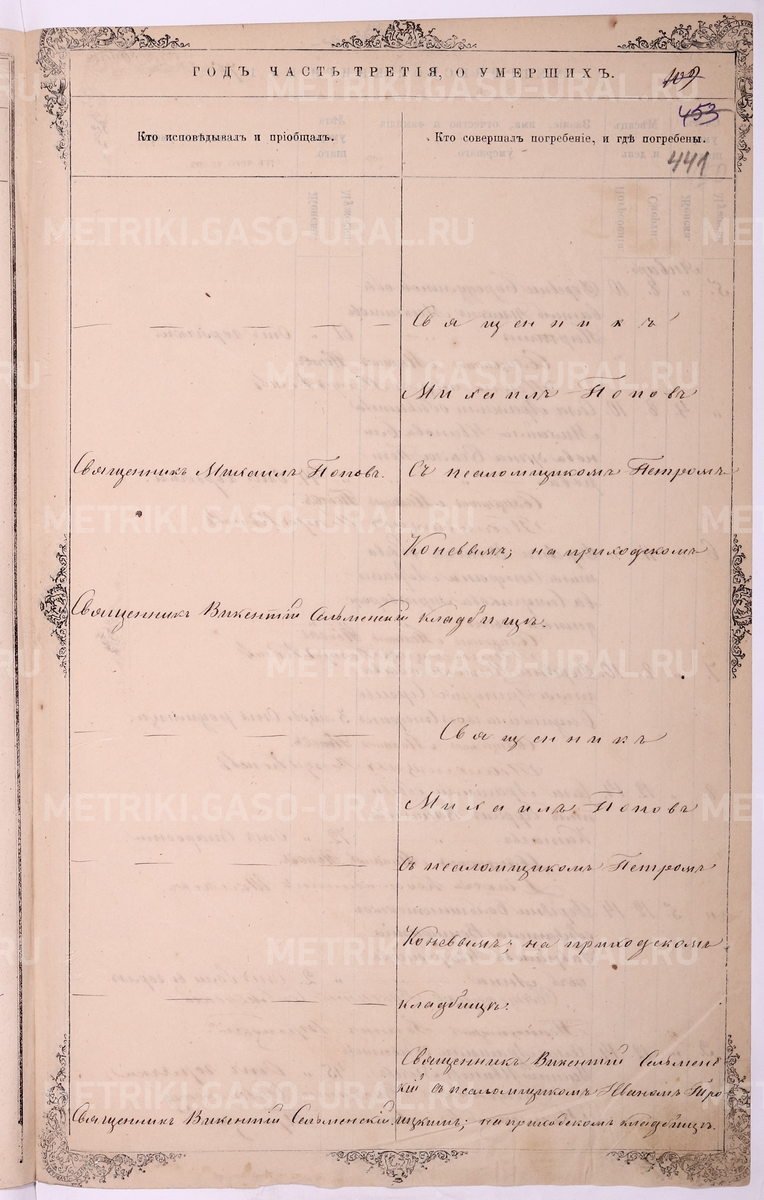 ГОДЪ ЧАСТЬ ТРЕТІЯ, О УМЕРШИХЪ.
453
441
Кто исповѣдывалъ и пріобщалъ.
Кто совершалъ погребеніе, и гдѣ погребены.
Священникъ Михаилъ Поповъ.
Священникъ Викентій Сельменскій
Священникъ Викентій Сельменскій
Священникъ
Михаилъ Поповъ
Съ псаломщикомъ Петромъ
Коневымъ; на приходскомъ
кладбищѣ.
Священникъ
Михаилъ Поповъ
съ псаломщикомъ Петромъ
Коневымъ; на приходскомъ
кладбищѣ.
Священникъ Викентій Сельменс
кій съ псаломщикомъ Иваномъ Тро
ицкимъ; на приходскомъ кладбищѣ.
METRIKI.GASO-URAL.RU